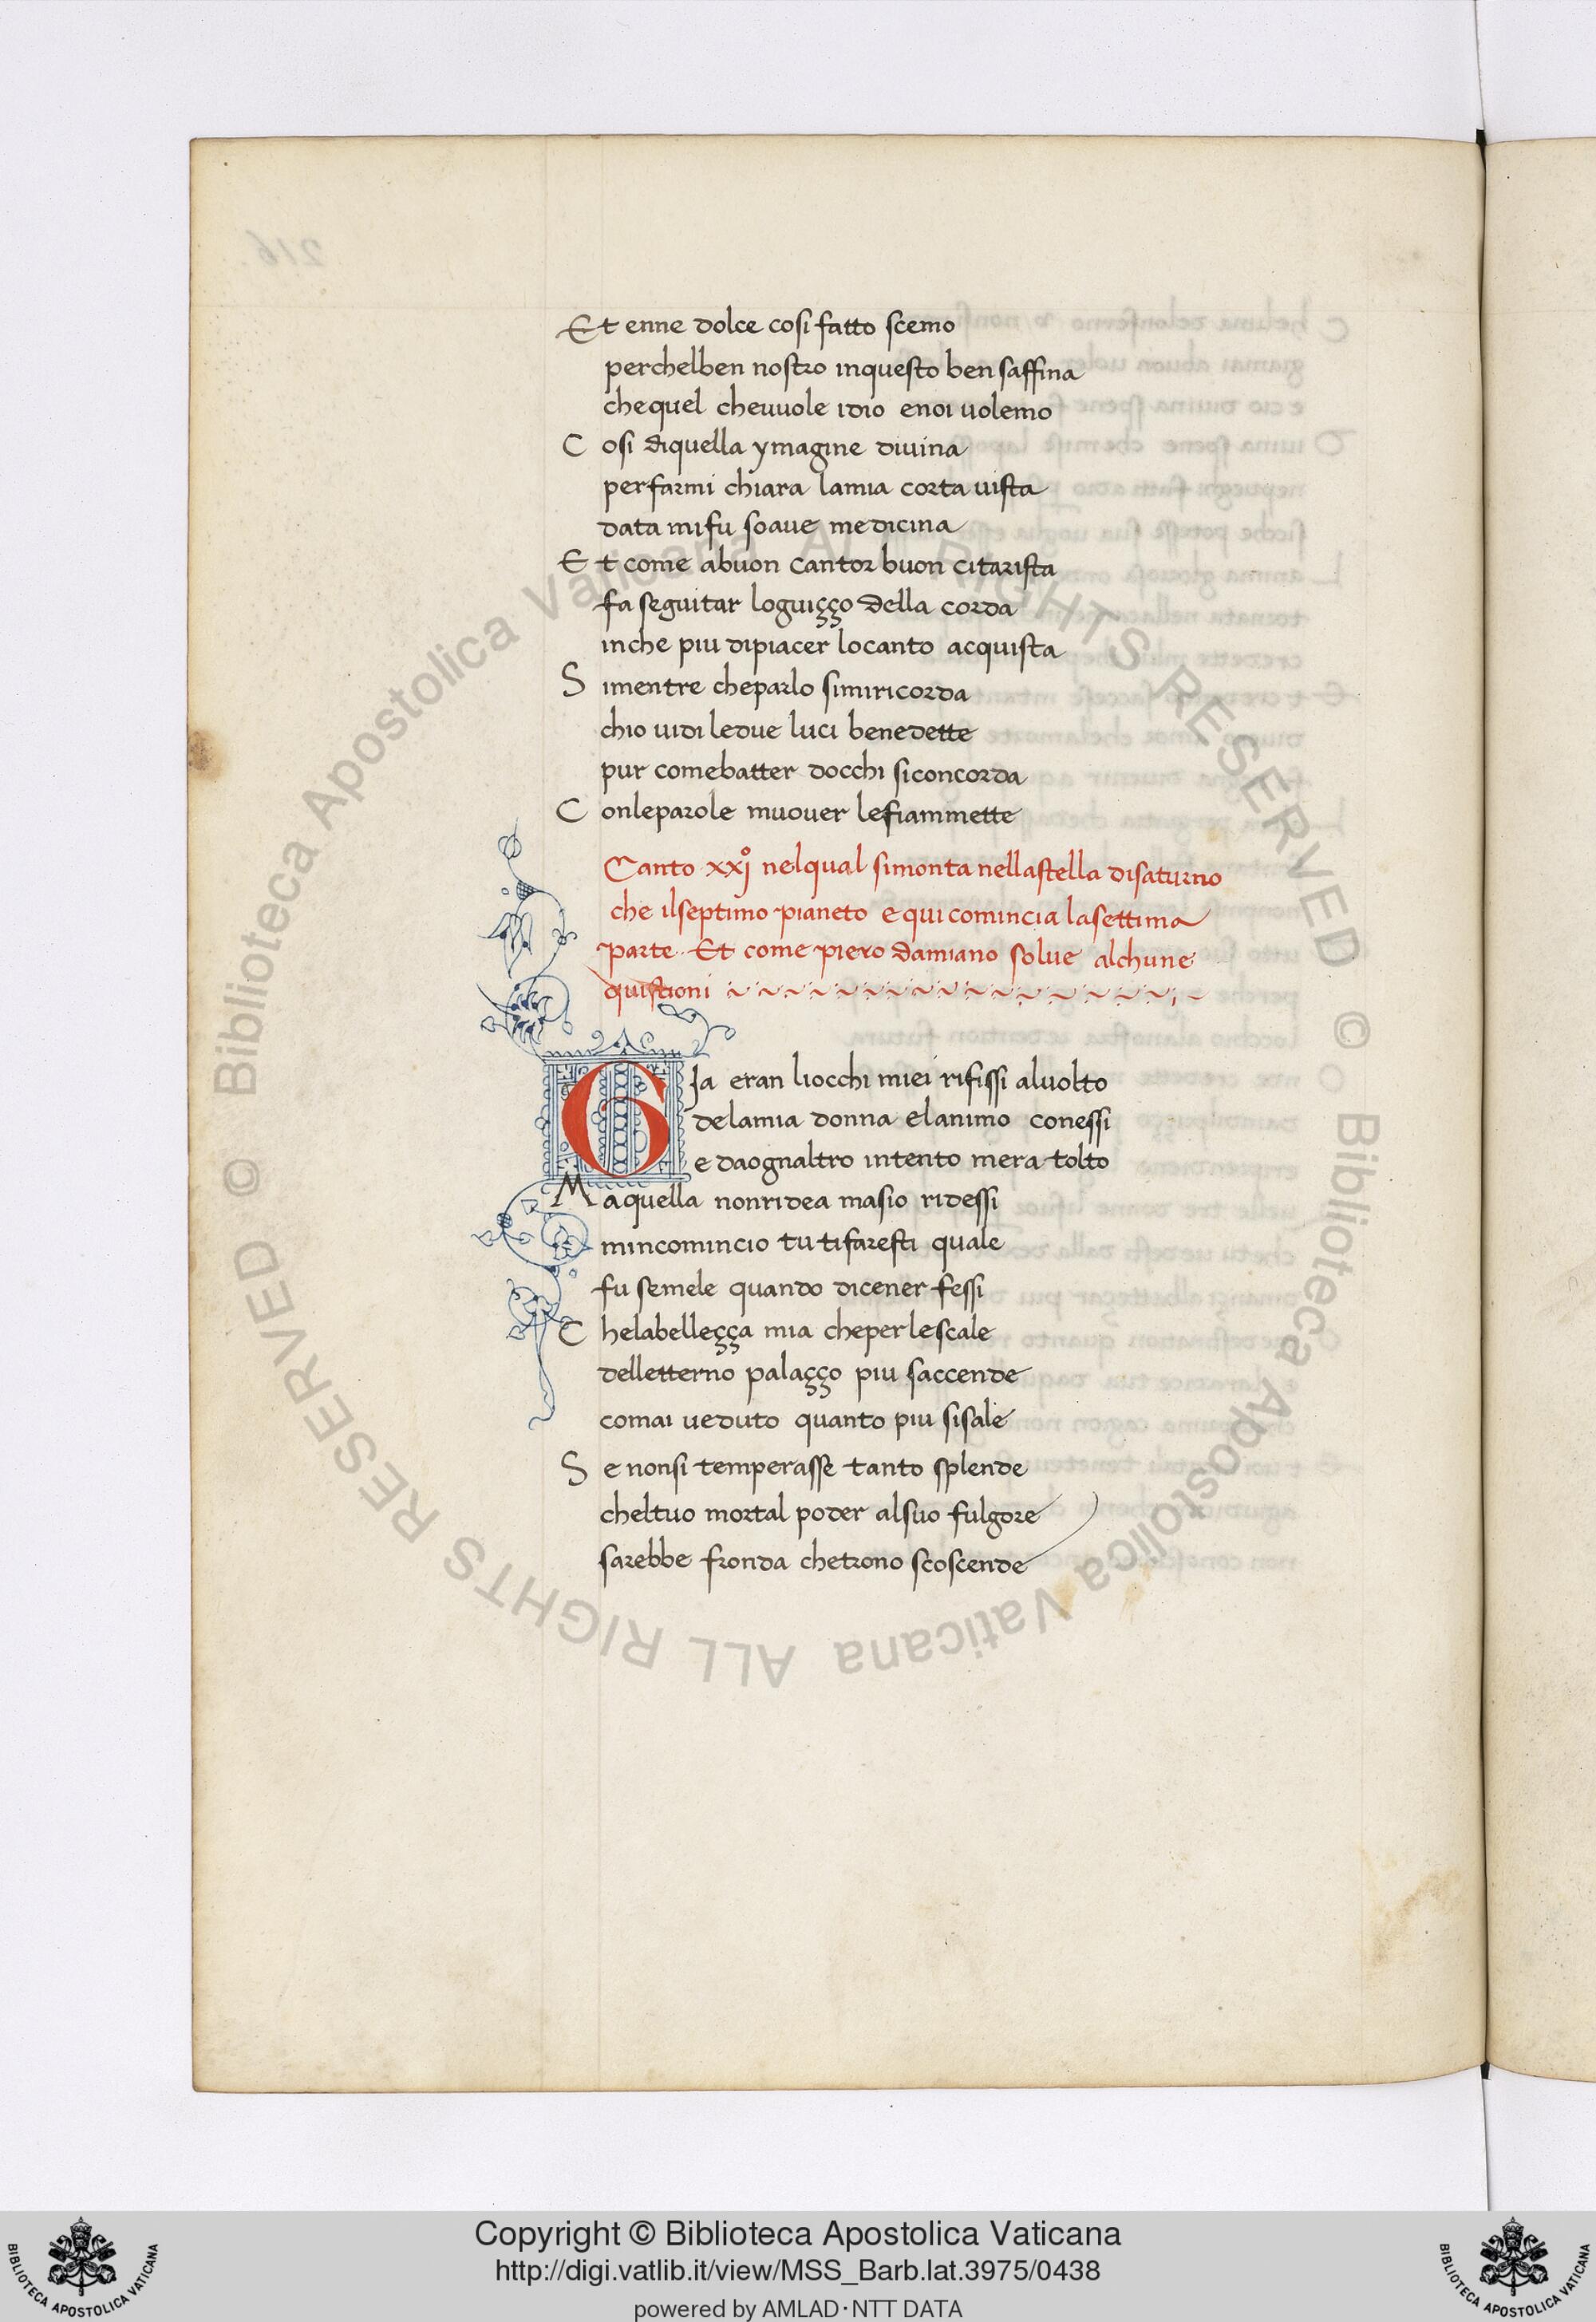 Et enne dolce cosi fatto scemo
perchelben nostro inquesto ben saffina
chequel cheuuole idio enoi uolemo
C osi diquella ymagine diuina
perfarmi chiara lamia corta uista
data mifu soaue medicina
E t come abuon cantor buon citarista
fa seguitar loguiçço della corda
inche piu dipiacer locanto acquista
S imentre cheparlo simiricorda
chio uidi ledue luci benedette
pur comebatter docchi siconcorda
C onleparole muouer lefiammette
Canto xxjº nelqual simonta nellastella disaturno
che ilseptimo pianeto e qui comincia lasettima
parte. Et come piero damiano solue alchune
quistioni
Gja eran liocchi miei rifissi aluolto
delamia donna elanimo conessi
e daognaltro intento mera tolto
M aquella nonridea masio ridessi
mincomincio tu tifaresti quale
fu semele quando dicener fessi
C helabelleçça mia cheperlescale
delletterno palaçço piu saccende
comai ueduto quanto piu sisale
S e nonsi temperasse tanto splende
cheltuo mortal poder alsuo fulgore
sarebbe fronda chetrono scoscende
© Biblioteca Apostolica Vaticana ALL RIGHTS RESERVED
© Biblioteca Apostolica Vaticana ALL RIGHTS RESERVED
BIBLIOTECA APOSTOLICA VATICANA
Copyright © Biblioteca Apostolica Vaticana
http://digi.vatlib.it/view/MSS_Barb.lat.3975/0438
powered by AMLAD·NTT DATA
BIBLIOTECA APOSTOLICA VATICANA